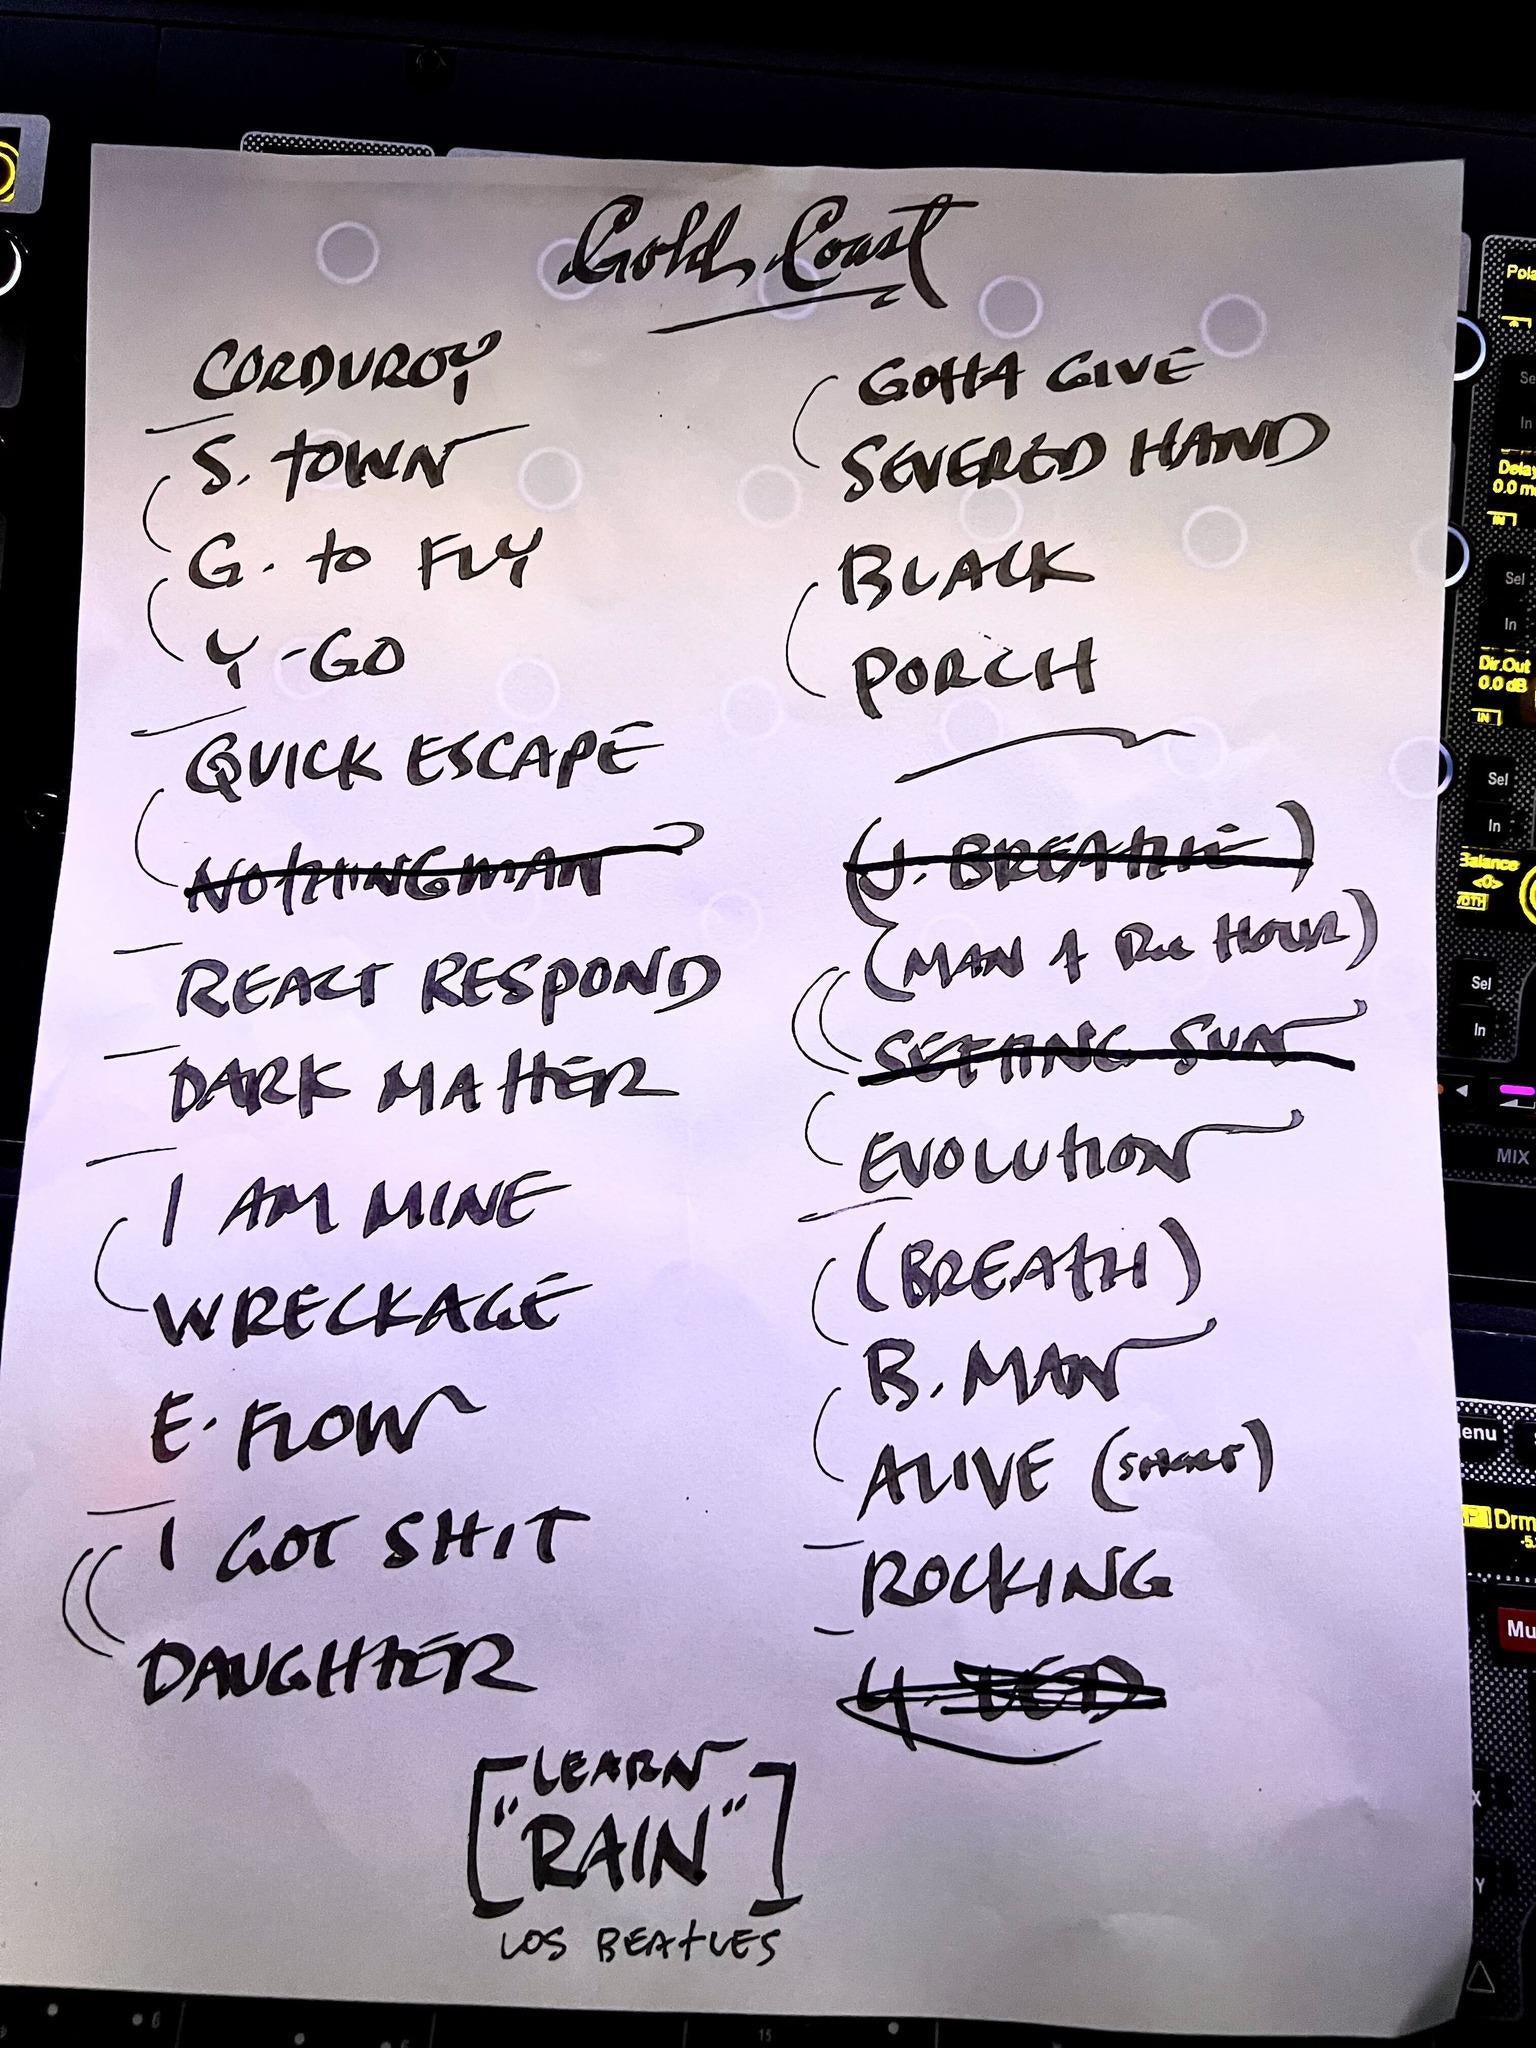 Gold Coast
CORDUROY
S. TOWN
G. TO FLY
Y-GO
QUICK ESCAPE
NOTHINGMAN
REACT RESPOND
DARK MATTER
I AM MINE
WRECKAGE
E. FLOW
I GOT SHIT
DAUGHTER
GOTTA GIVE
SEVERED HAND
BLACK
PORCH
(J. BREATHE)
(MAN HOUR)
SETTING SUN
EVOLUTION
(BREATH)
B. MAN
ALIVE
ROCKING
Y. LED
[LEARN
"RAIN"]
LOS BEATLES
Sel
In
Delay
IN
Sel
In
Dir.Out
0.0 dB
IN
Sel
In
Balance
<0>
Sel
In
MIX
15
6